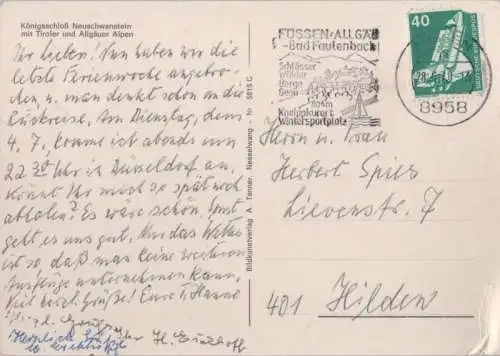 Königsschloß Neuschwanstein
mit Tiroler und Allgäuer Alpen
Ihr Lieben! Nun haben wir die
letzte Ferienwoche angebro-
chen, u. man denkt schon an die
Rückreise. Am Dienstag, dem
4. 7. komme ich abends um
22 30 Uhr in Düsseldorf an.
Könnt Ihr mich so spät noch
abholen? Es wäre schön. Sonst
geht es uns gut. Nur das Wetter
ist so, daß man keine weiteren
Ausflüge unternehmen kann.
Viel herzl. Grüße! Eure T. Hanna
Herzliche
Bildkunstverlag A. Tanner, Nesselwang - Nr. 5815 C
FÜSSEN·ALLGÄU
-Bad Faulenbach
Schlösser
Wälder
Berge
Seen
Kneippkurort
Wintersportplatz
40
DEUTSCHE BUNDESPOST
8958
Herrn u. Frau
Herbert Spies
Lievenstr. 7
401 Hilden